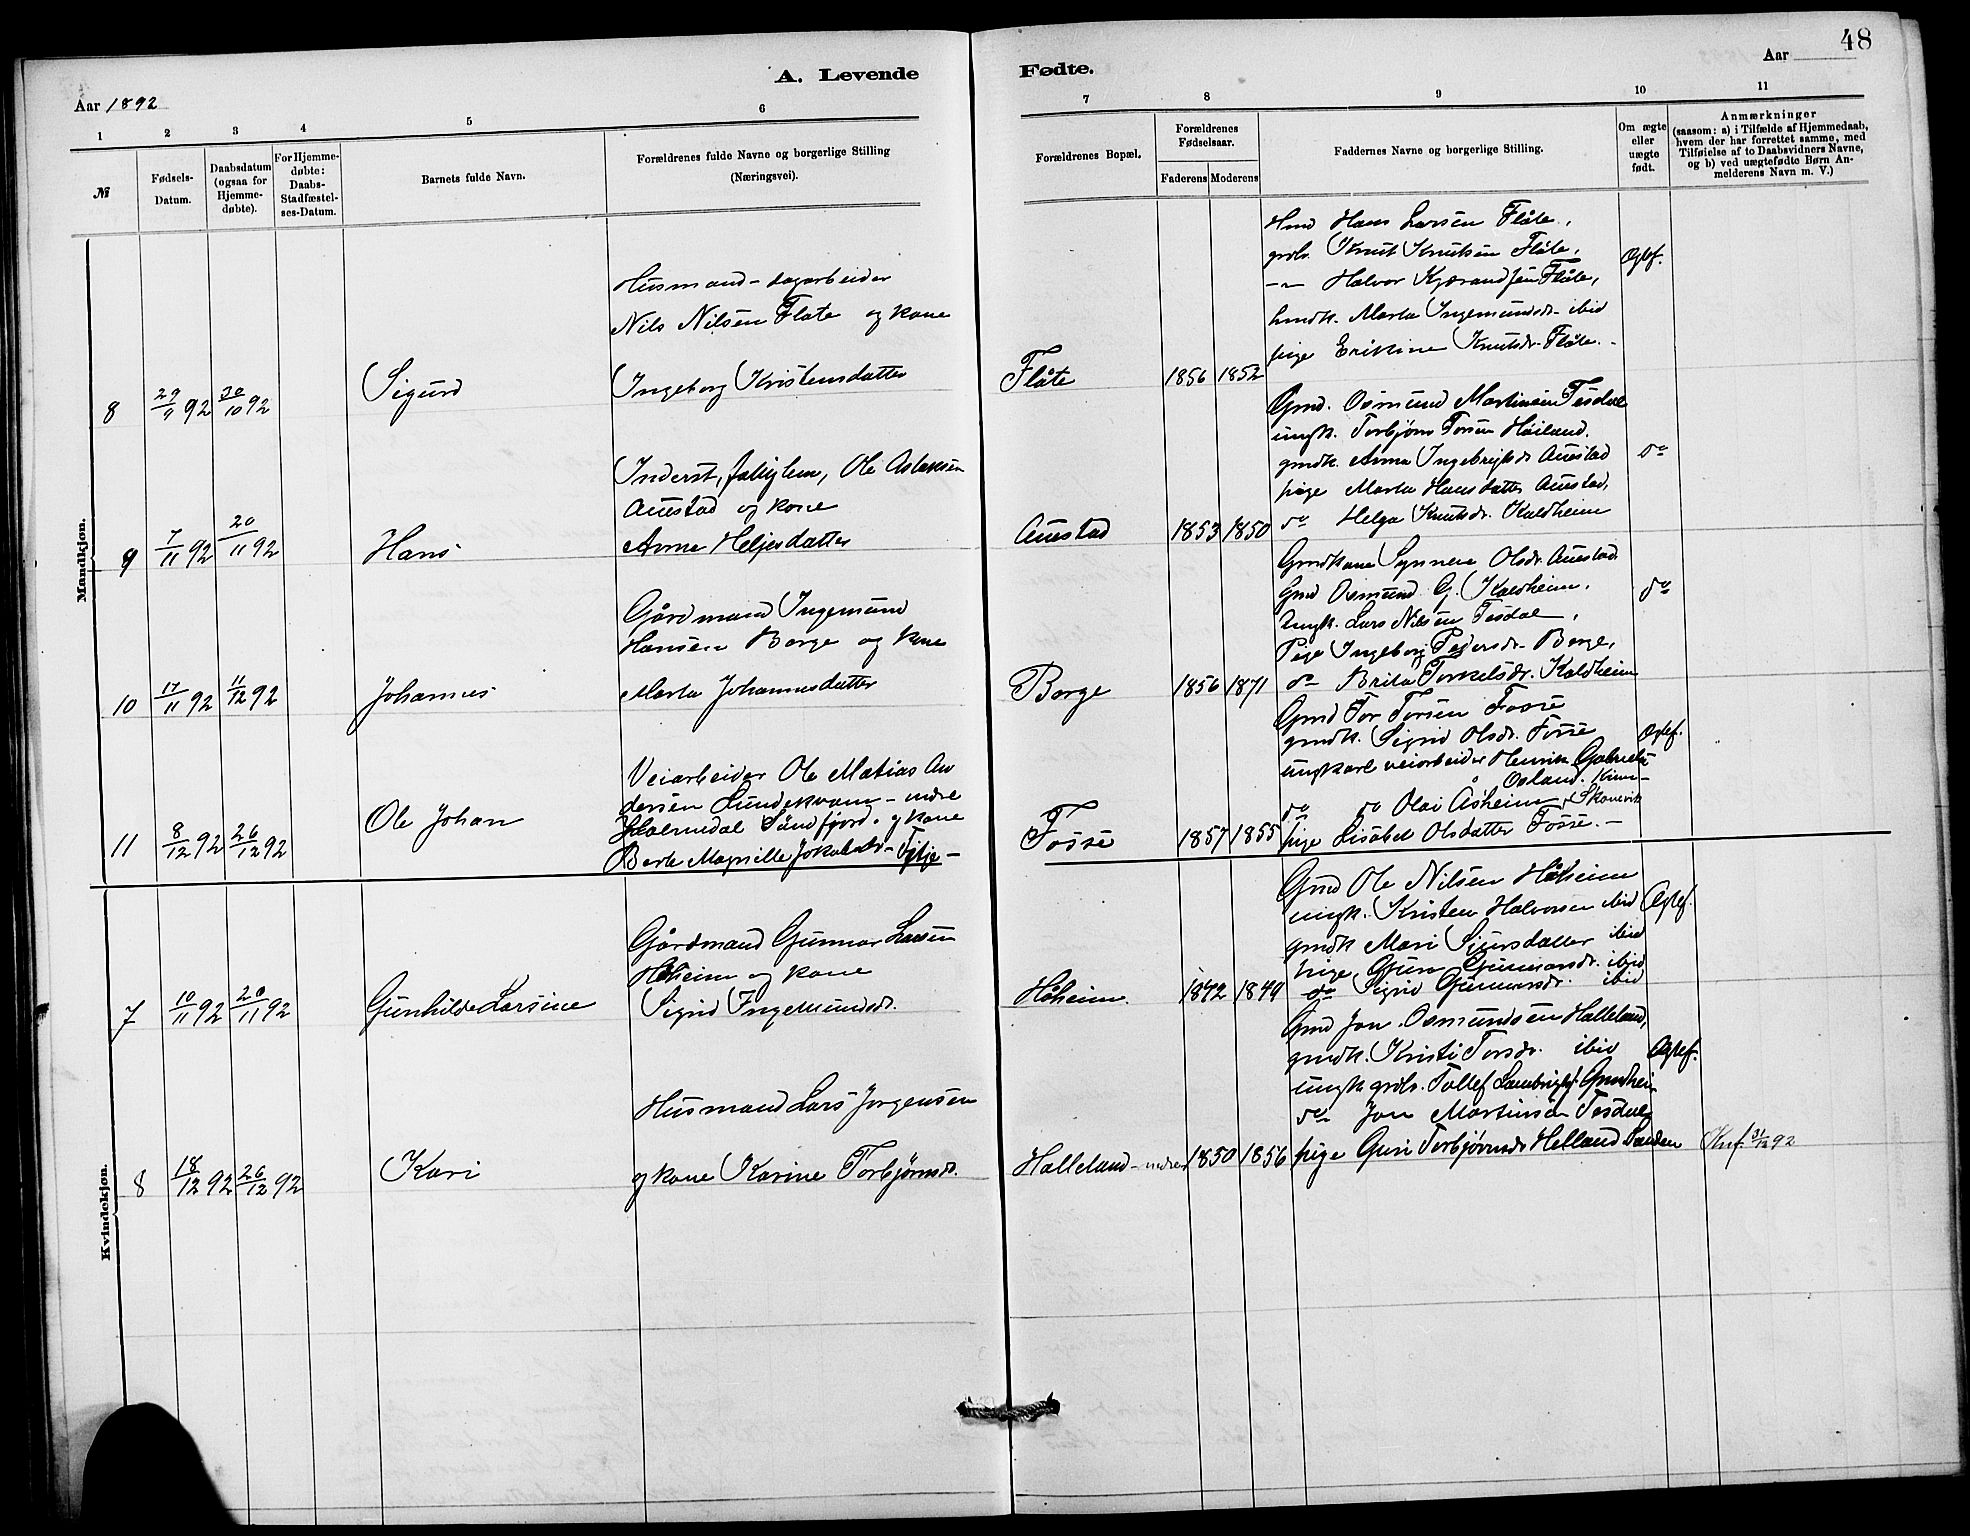 48
A. Levende Fødte.
Aar 1892
Aar
1 2 3 4 5 6 7 8 9 10 11
№
Fødsels-Datum.
Daabsdatum (ogsaa for Hjemmedøbte).
For Hjemmedøbte: Daabs-Stadfæstelses-Datum.
Barnets fulde Navn.
Forældrenes fulde Navne og borgerlige Stilling
(Næringsvei).
Forældrenes Bopæl.
Forældrenes Fødselsaar.
Faderens Moderens
Faddernes Navne og borgerlige Stilling.
Om ægte eller uægte født.
Anmærkninger
(saasom: a) i Tilfælde af Hjemmedaab,
hvem der har forrettet samme, med
Tilføielse af to Daabsvidners Navne,
og b) ved uægtefødte Børn An-
melderens Navn m. V.)
Mandkjøn.
8 92 30/10 92 Sigurd
Husmand-dagarbeider
Nils Nilsen Flåte og kone
Ingeborg Kristensdatter
Flåte 1856 1852
Hmd Hans Larsen Flåte,
grdls. Knut Knutsen Flåte,
-"- Halvor Flåte,
hmdk. Marta Ingemundsdr. ibid
pige Erikine Knutsdr. Flåte.
Ægtef.
9 7/11 92 20/11 92 Hans
Inderst, Ole Aslaksen
Auestad og kone
Anna Heljesdatter
Auestad 1853 1850
Gmd. Osmund Martinsen Tesdal
ungk. Torbjørn Torsen Høiland.
gmdk. Anna Ingebrigtsdr. Auestad
pige Marta Hansdatter Auestad,
do Helga Knutsdr. Kaldheim
do
10 17/11 92 11/12 92 Johannes
Gårdmand Ingemund
Hansen Borge og kone
Marta Johannesdatter
Borge 1856 1871
Gmdkone Synneva Olsdr. Auestad
Gmd Osmund G. Kaldheim,
Ungk. Lars Nilsen Tesdal,
Pige Ingeborg Pedersdr. Borge,
do Brita Torkelsdr. Kaldheim
do
11 8/12 92 26/12 92 Ole Johan
Veiarbeider Ole Matias An
dersen Lundekvam - indre
Holmedal Søndfjord. og kone
Berte Jokobsdr. -
Fosse 1857 1855
Gmd Tor Torsen Fosse
gmdk. Sigrid Olsdr. Fosse
ungkarl veiarbeider Henrik
Osland.
do do Olai Åsheim Skonevik
pige Lisabet Olsdatter Fosse. -
Ægtef.
Kvindekjøn.
7 10/11 92 20/11 92 Gunhilde Larsine
Gårdmand Gunnar Larsen
Håheim og kone
Sigrid Ingemundsdr.
Håheim. 1842 1849
Gmd Ole Nilsen Håheim
ungk. Kristen Halvorsen ibid
gmdk Mari Sjursdatter ibid
pige Guri Gunnarsdr. ibid
do Sigrid Gunnarsdr. ibid
Ægtef.
8 18/12 92 26/12 92 Kari
Husmand Lars Jørgensen
og kone Karine Torbjørnsdr.
Halleland - indre 1850 1856
Gmd Jon Osmundsen Halleland,
gmdk. Kristi Torsdr. ibid
ungk. grdls. Tollef
do Jon Martinsen Tesdal
pige Guri Torbjørnsdr Helland
Ægtef.
31/12 92